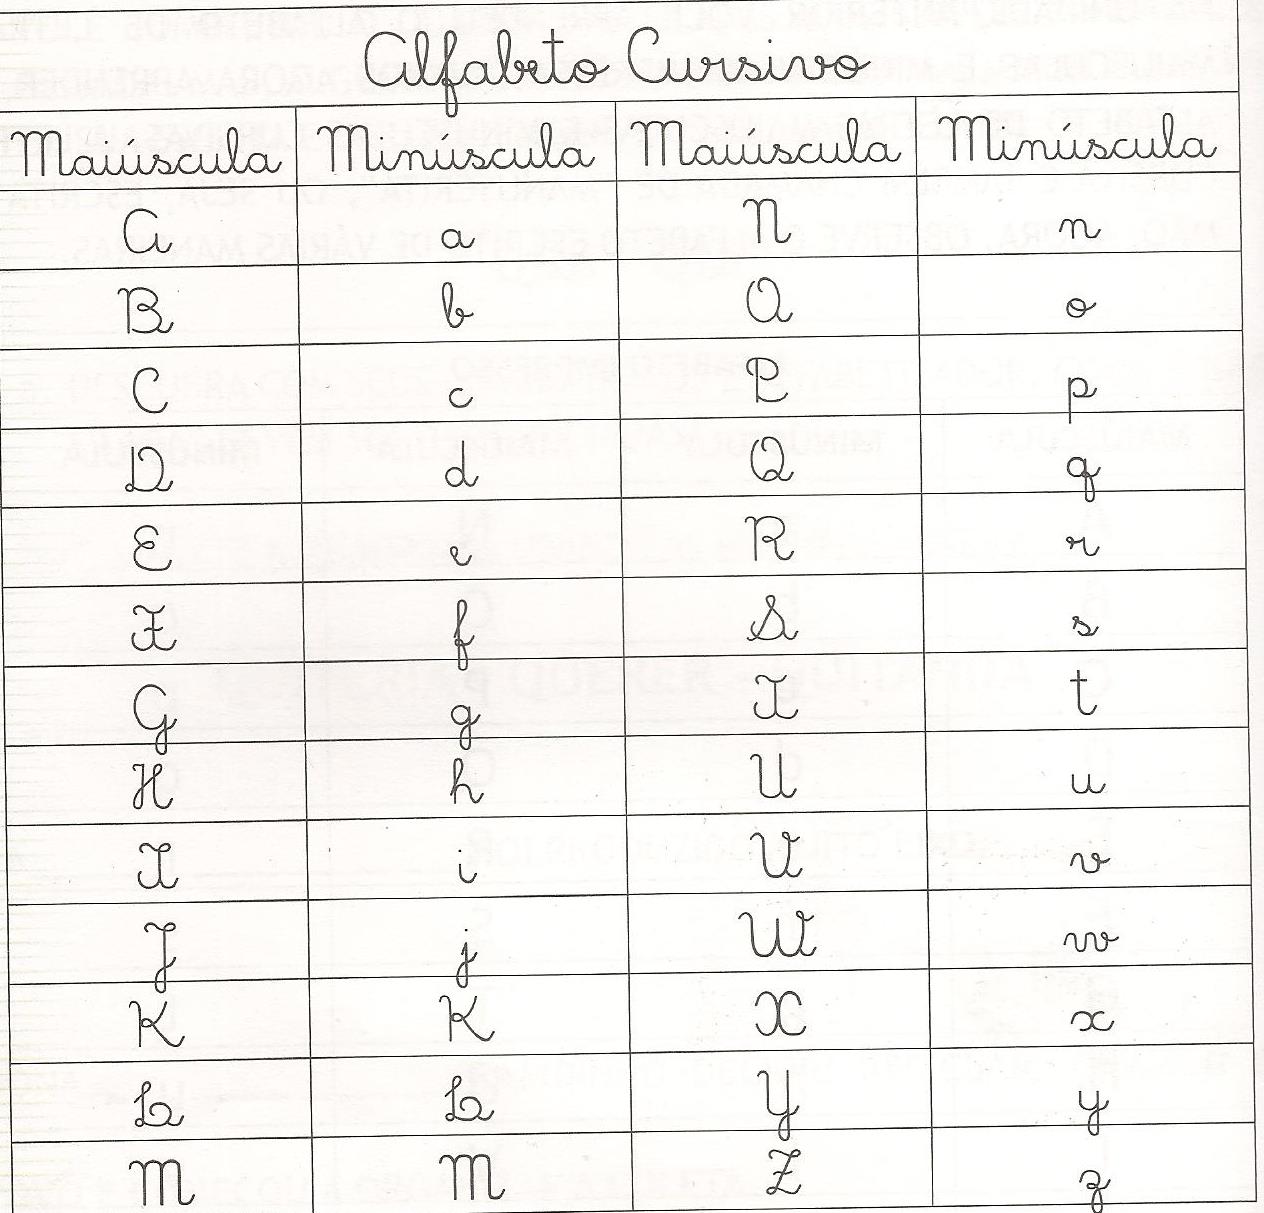 Alfabeto Cursivo
Maiúscula Minúscula Maiúscula Minúscula
A a N n
B b O o
C c P p
D d Q q
E e R r
F f S s
G g T t
H h U u
I i V v
J j W w
K K X x
L L Y y
M M Z z